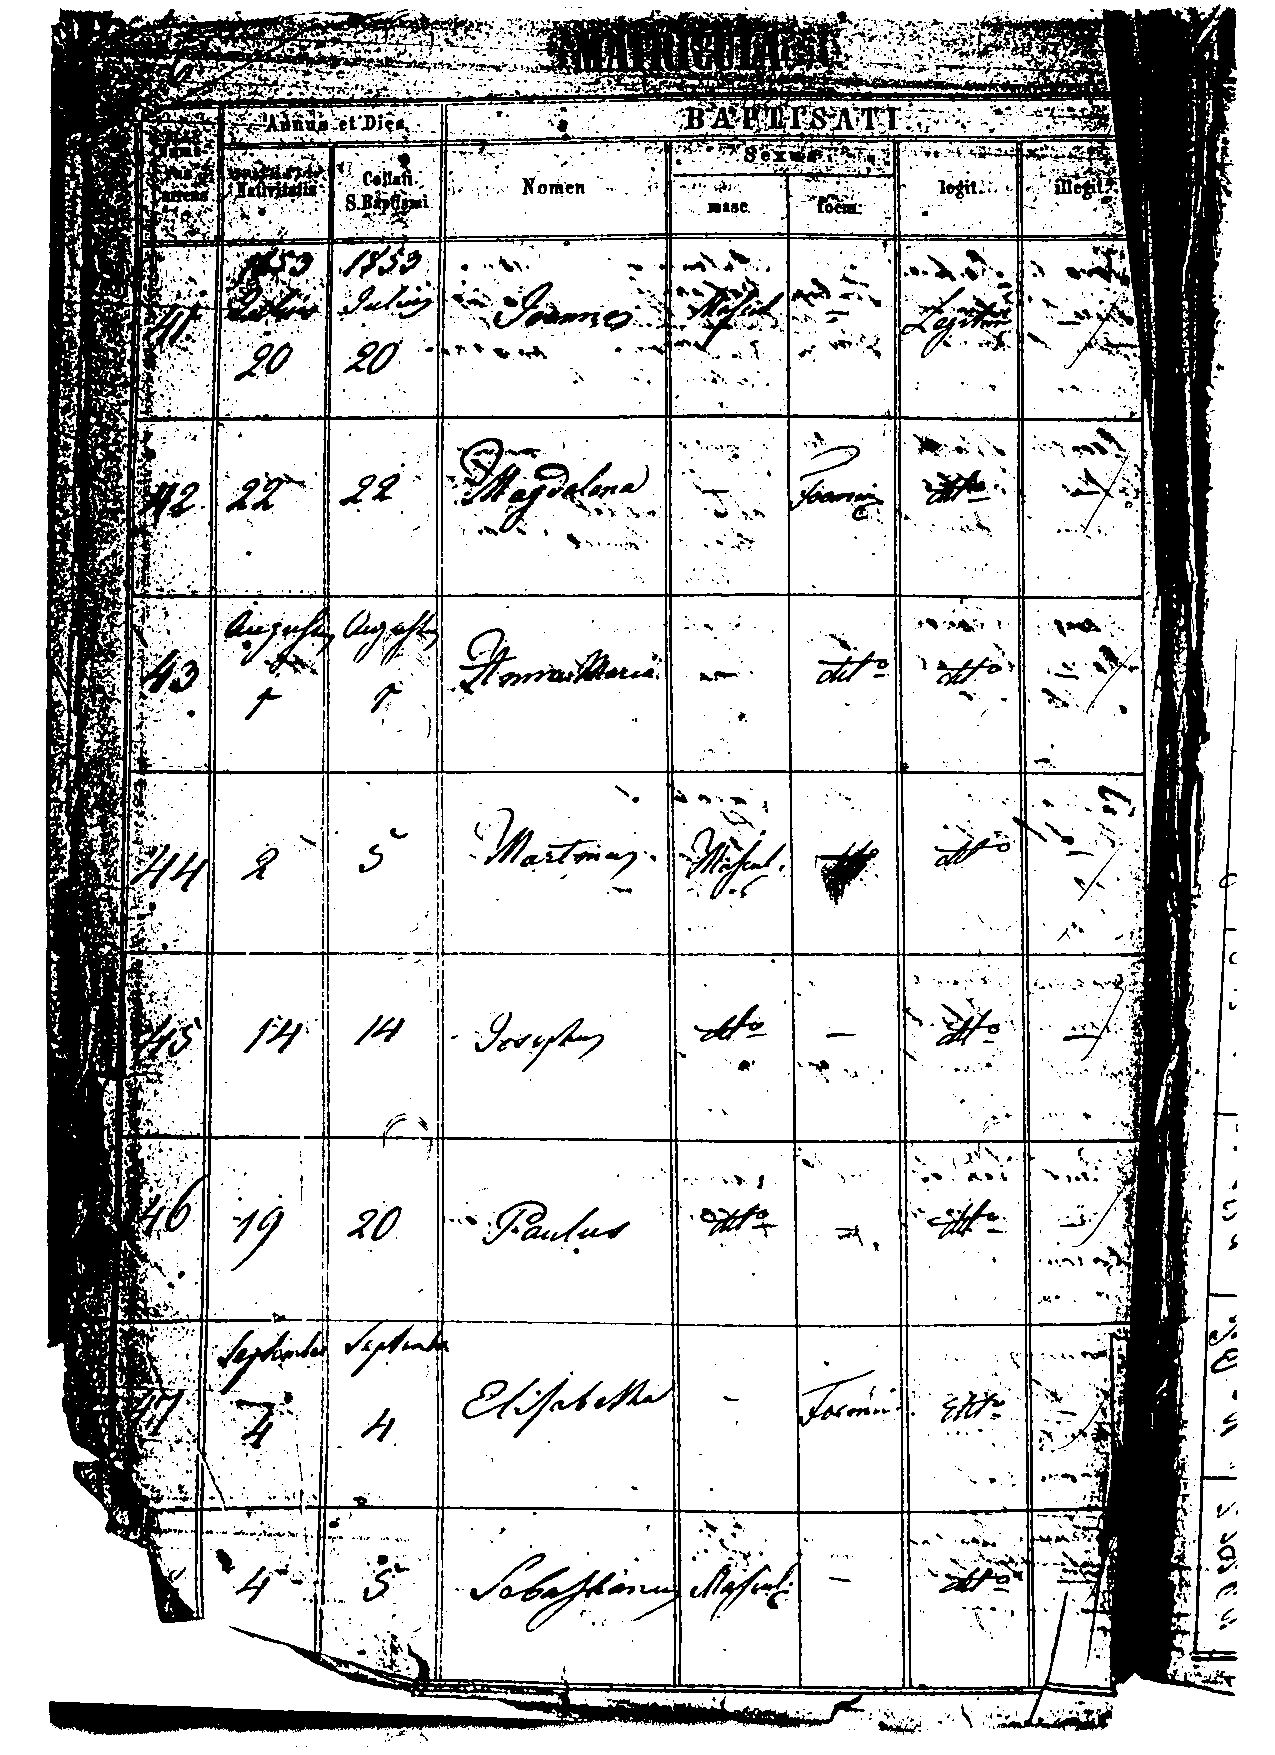 MATRICULA
Annus et Dies
BAPTISATI
Nativitatis
Collati
S. Baptismi
Nomen
Sexus
masc.
foem.
legit.
illegit.
1853 1853
41 Julius Julius Joannes Mascul. – Legitim –
20 20
42 22 22 Magdalena – Foemin dtto –
Augustus Augustus
43 1 1 Anna Maria – dtto dtto –
44 2 5 Martinus Mascul. dtto –
45 14 14 Josephus dtto – dtto –
46 19 20 Paulus dtto – dtto –
September September
47 4 4 Elisabetha – Foemin. dtto –
4 5 Sebastianus Mascul. – dtto –